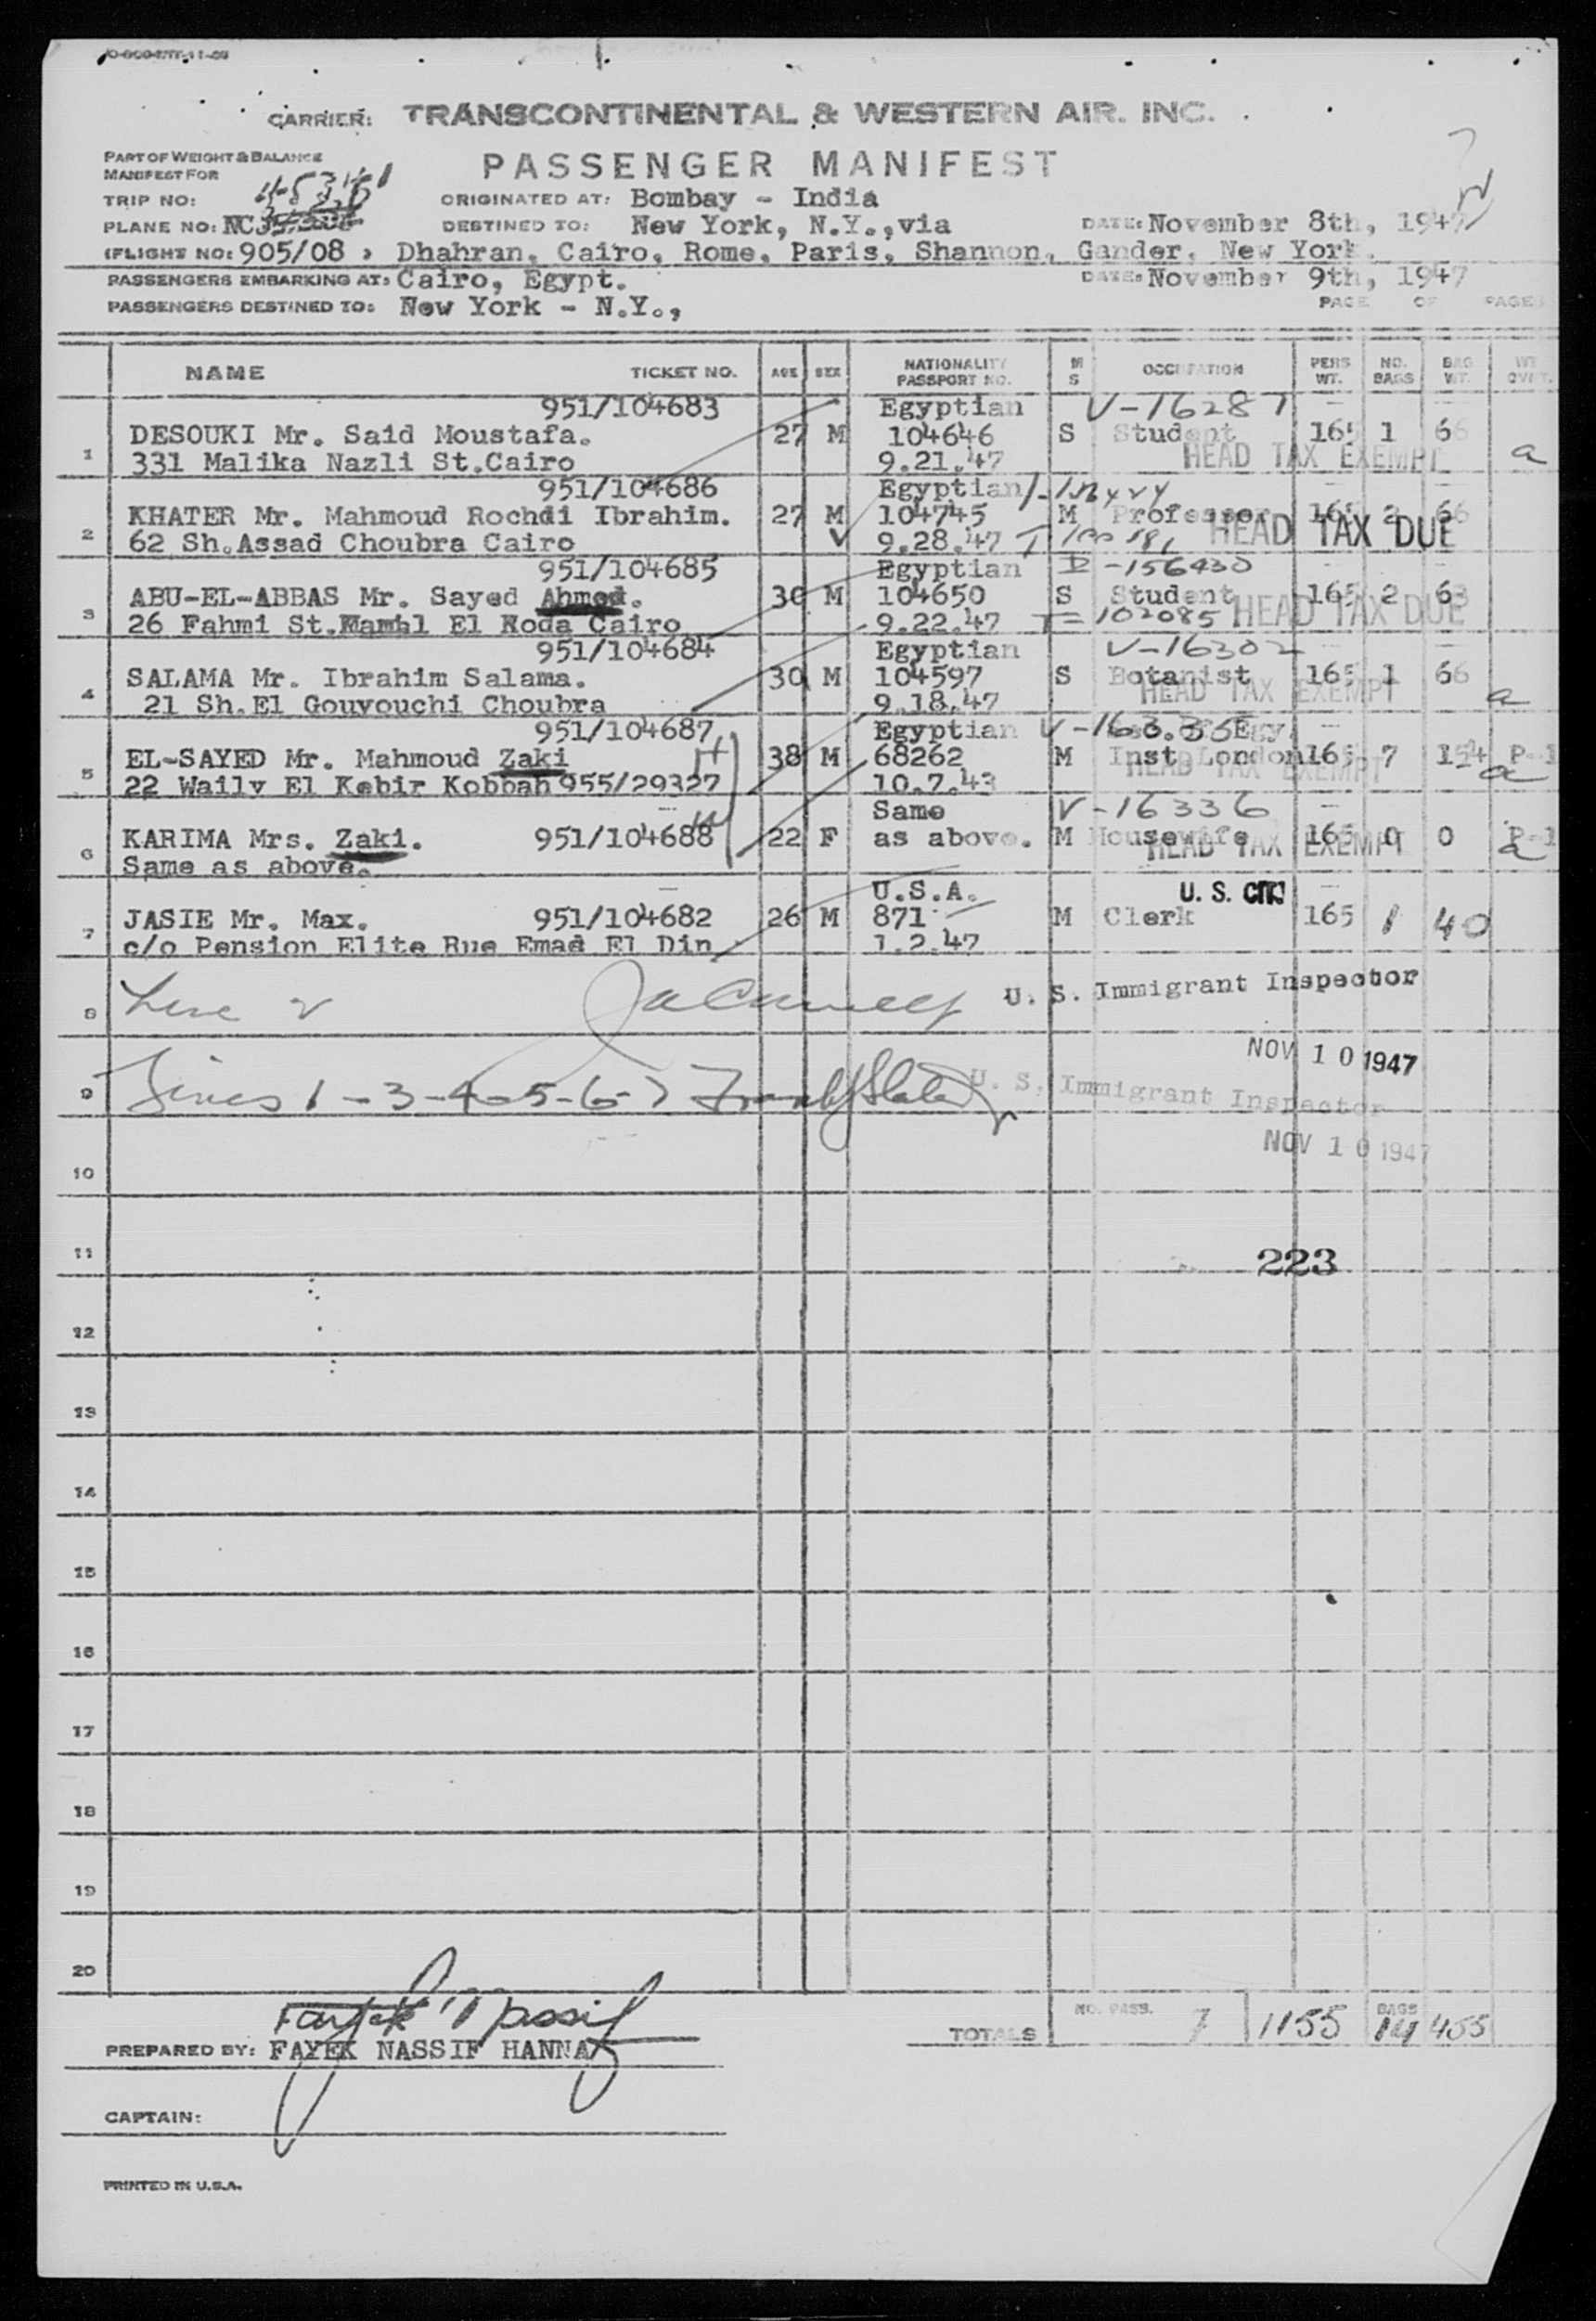 CARRIER: TRANSCONTINENTAL & WESTERN AIR. INC.
PART OF WEIGHT & BALANCE
MANIFEST FOR
PASSENGER MANIFEST
TRIP NO:
ORIGINATED AT: Bombay - India
PLANE NO: NC
DESTINED TO: New York, N.Y.,via
DATE: November 8th, 1947
(FLIGHT NO: 905/08 , Dhahran, Cairo, Rome, Paris, Shannon, Gander, New York.
PASSENGERS EMBARKING AT: Cairo, Egypt.
DATE: November 9th, 1947
PASSENGERS DESTINED TO: New York - N.Y.,
PAGE OF PAGES
NAME TICKET NO. AGE SEX NATIONALITY PASSPORT NO. M S OCCUPATION PERS WT. NO. BAGS BAG WT. WT OVWT.
951/104683 Egyptian V-16287
1 DESOUKI Mr. Said Moustafa. 27 M 104646 S Student 165 1 66
331 Malika Nazli St.Cairo 9.21.47 HEAD TAX EXEMPT a
951/104686 Egyptian
2 KHATER Mr. Mahmoud Rochdi Ibrahim. 27 M 104745 M Professor 165 2 66
62 Sh.Assad Choubra Cairo V 9.28.47 HEAD TAX DUE
951/104685 Egyptian -156430
3 ABU-EL-ABBAS Mr. Sayed Ahmed. 30 M 104650 S Student 165 2 63
26 Fahmi St. El Roda Cairo 9.22.47 T=102085 HEAD TAX DUE
951/104684 Egyptian V-16302
4 SALAMA Mr. Ibrahim Salama. 30 M 104597 S Botanist 165 1 66
21 Sh.El Gouyouchi Choubra 9.18.47 HEAD TAX EXEMPT a
951/104687 Egyptian V-16335 Egy.
5 EL-SAYED Mr. Mahmoud Zaki H 38 M 68262 M Inst London 165 7 154 P-1
22 Waily El Kebir Kobbah 955/29327 10.7.43 HEAD TAX EXEMPT a
Same V-16336
6 KARIMA Mrs. Zaki. 951/104688 W 22 F as above. M Housewife 165 0 0 P-1
Same as above. HEAD TAX EXEMPT a
U.S.A. U. S. CITZ
7 JASIE Mr. Max. 951/104682 26 M 871 M Clerk 165 1 40
c/o Pension Elite Rue Emad El Din 1.2.47
8 Line 2 U. S. Immigrant Inspector
NOV 10 1947
9 Lines 1-3-4-5-6-7 U. S. Immigrant Inspector
NOV 10 1947
10
11 223
12
13
14
15
16
17
18
19
20
TOTALS NO. PASS. 7 1155 BAGS 14 455
Fayek Nassif
PREPARED BY: FAYEK NASSIF HANNA
CAPTAIN:
PRINTED IN U.S.A.